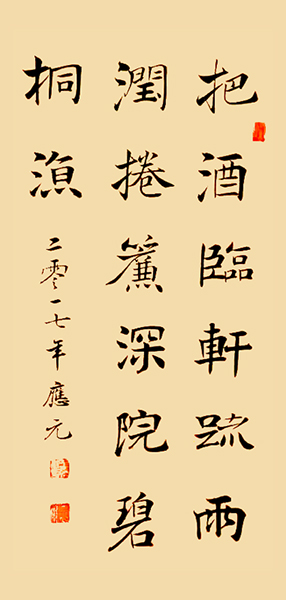 把酒臨軒疏雨
潤捲簾深院碧
桐涼
二零一七年應元